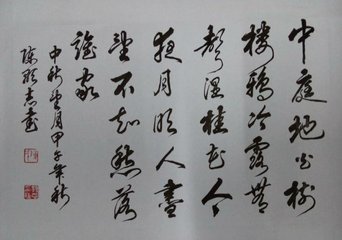 中庭地白樹
棲鴉冷露無
聲濕桂花今
夜月明人盡
望不知愁落
誰家
中秋望月甲子年秋
陈志書